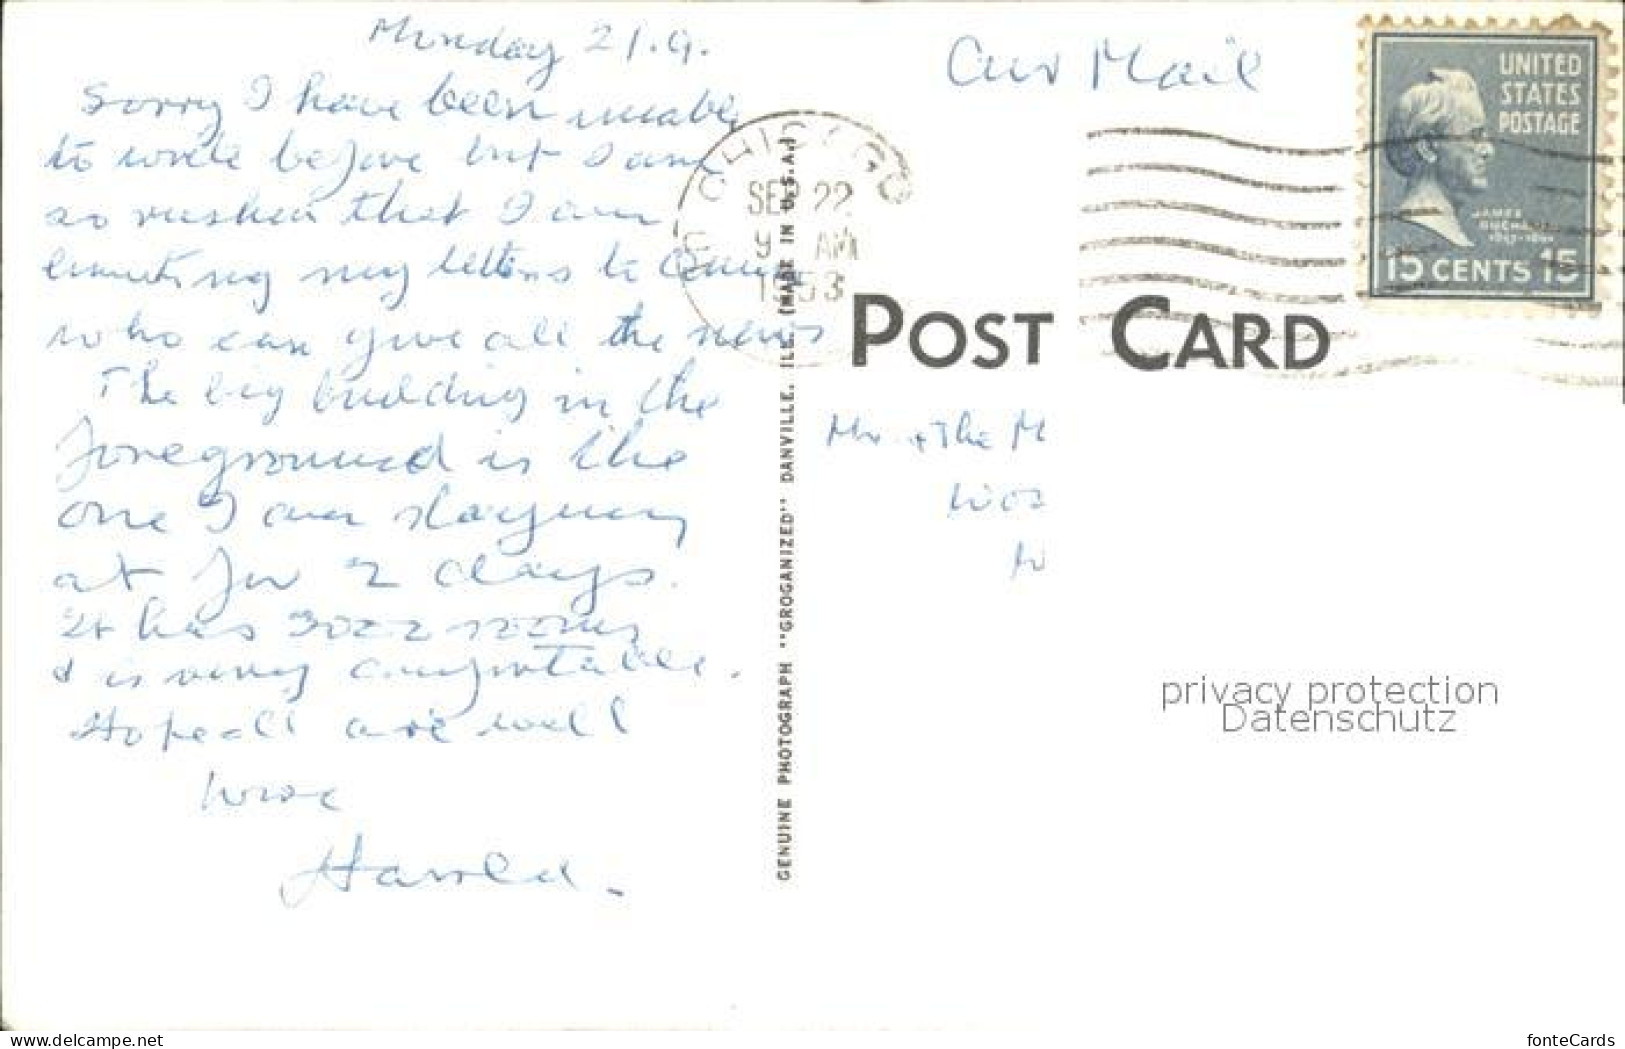 Monday 21.9.
Sorry I have been unable
to write before but I am
so rushed that I am
limiting my letters to
who can give all the news
The big building in the
foreground is the
one I am staying
at for 2 days.
It has 3000 rooms
& is very comfortable.
Hope all are well
Love
Harold.
Air Mail
CHICAGO
SEP 22
9 AM
1953
UNITED
STATES
POSTAGE
JAMES
BUCHANAN
1857-1861
15 CENTS 15
POST CARD
GENUINE PHOTOGRAPH "GROGANIZED" DANVILLE, ILL. (MADE IN U.S.A.)
Mr & The M
privacy protection
Datenschutz
www.delcampe.net
fonteCards